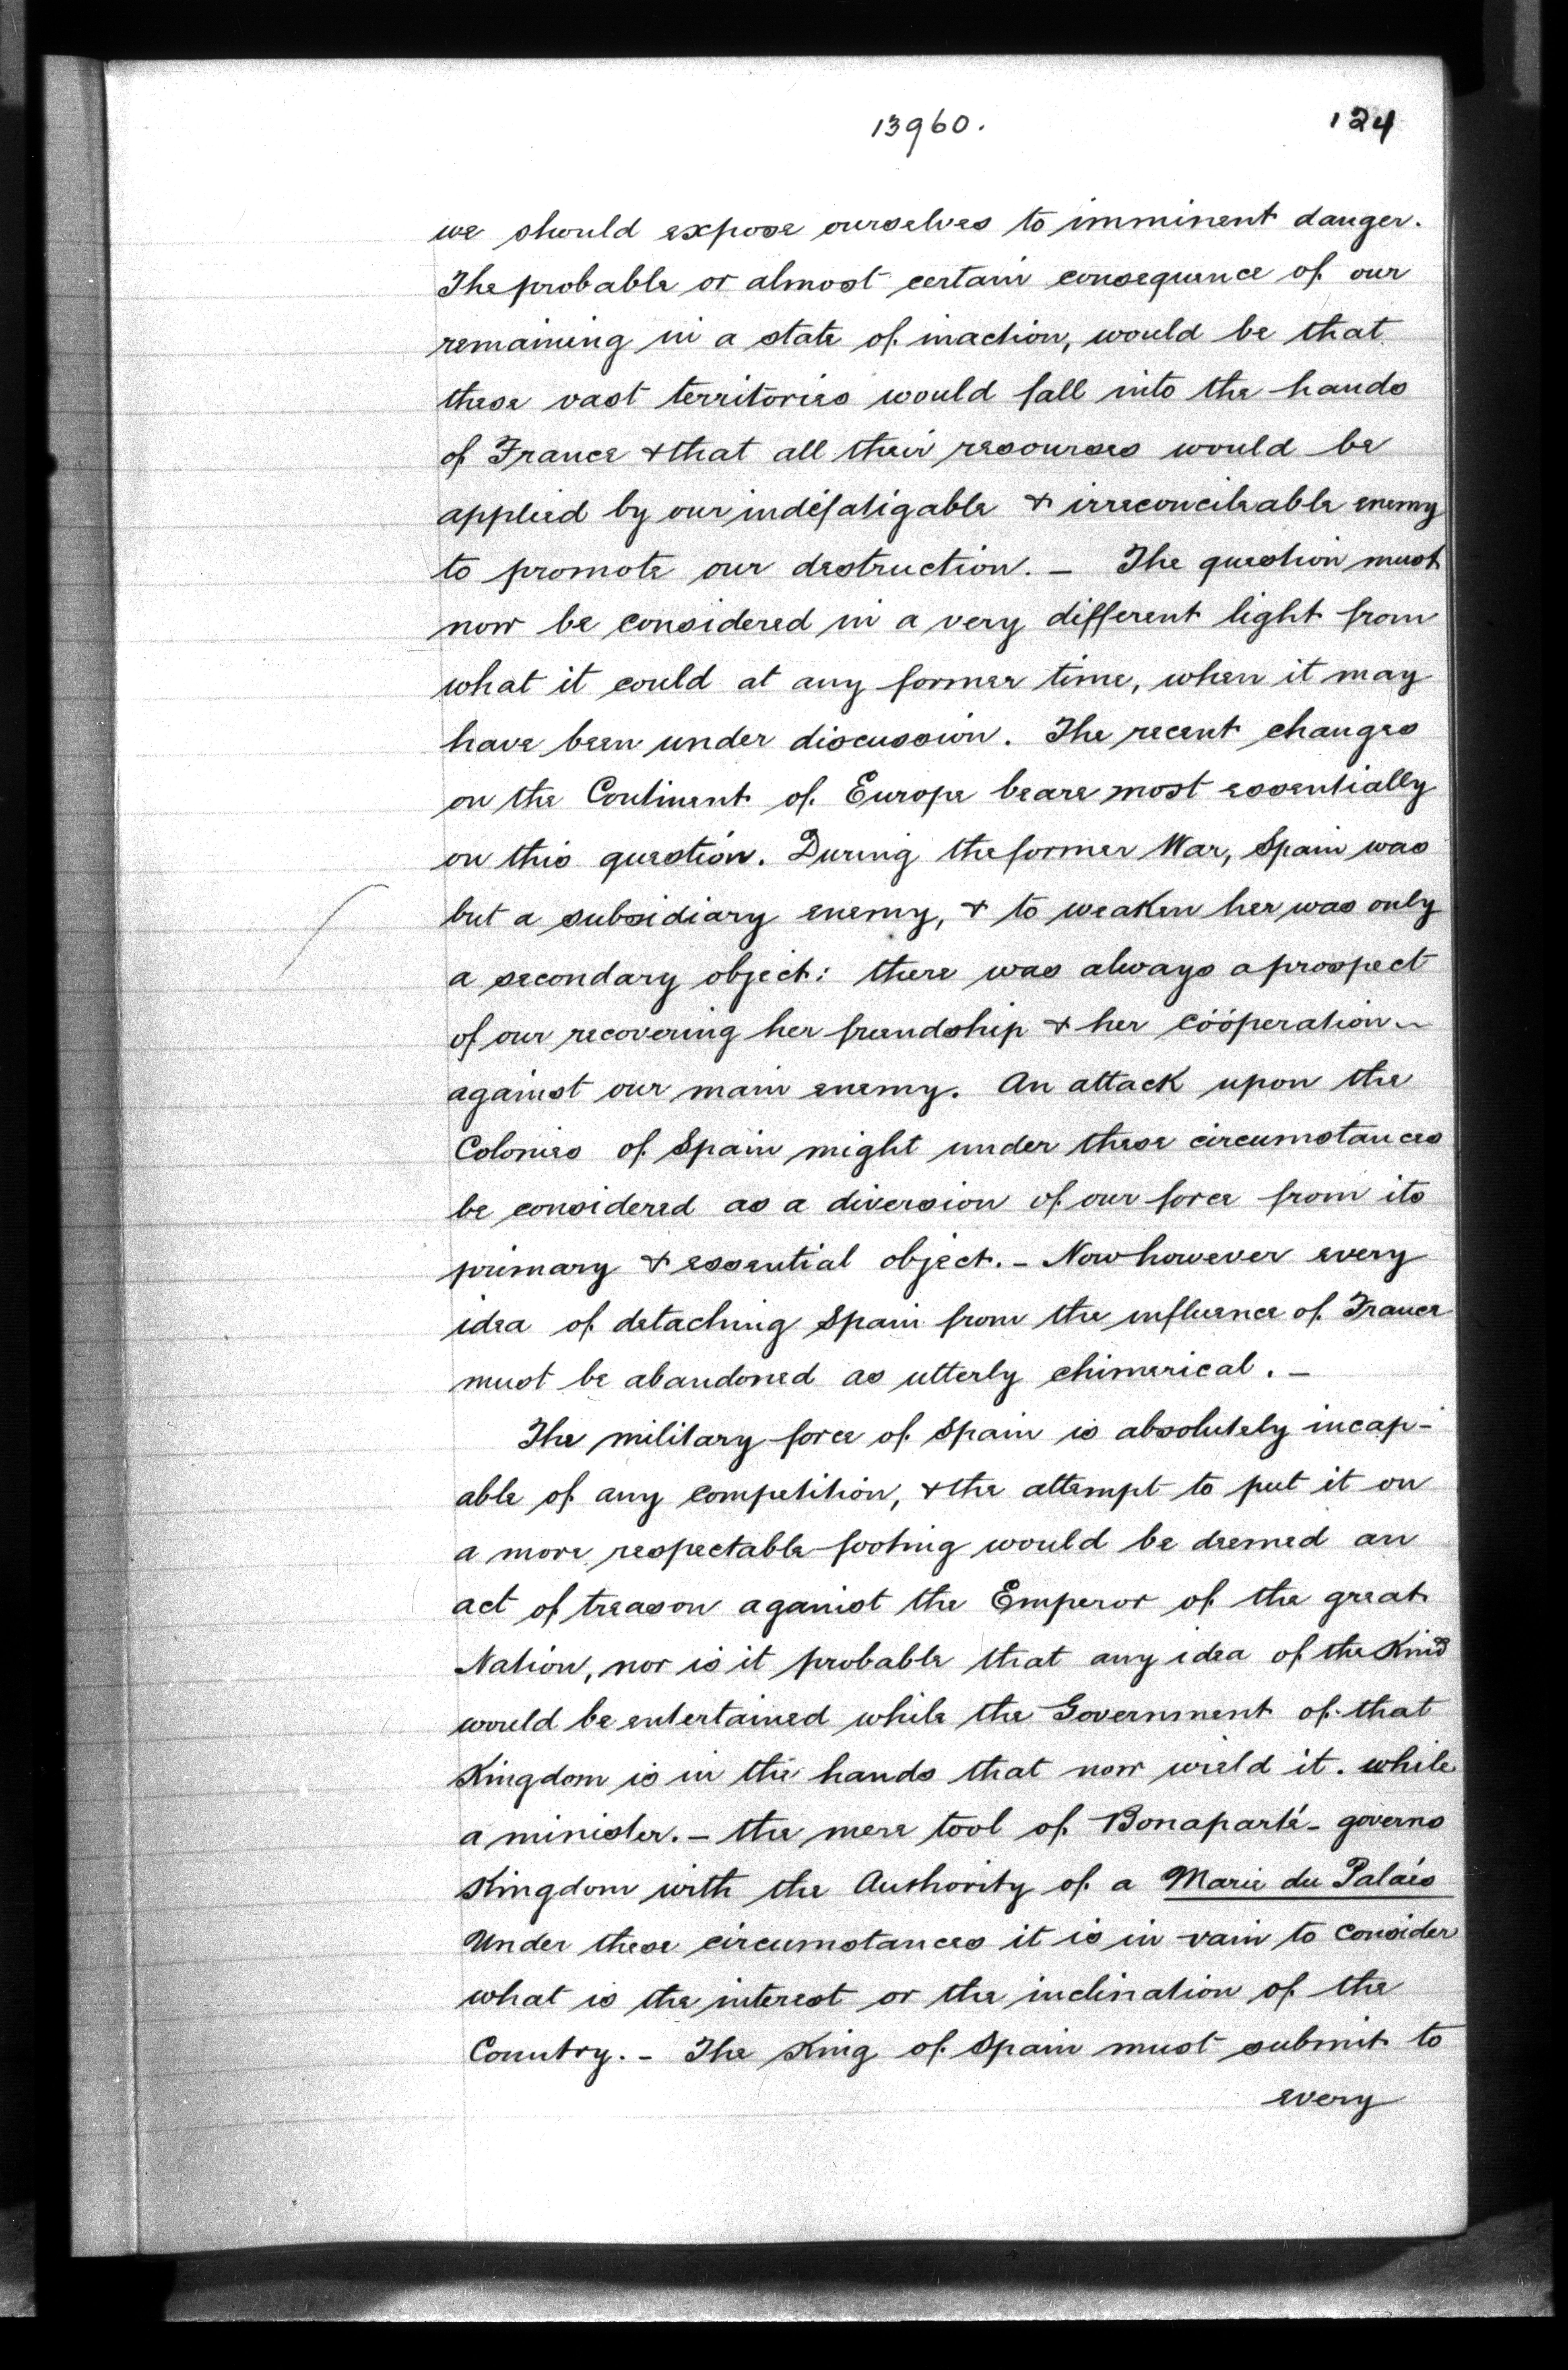 13960.
124
we should expose ourselves to imminent danger.
The probable or almost certain consequence of our
remaining in a state of inaction, would be that
these vast territories would fall into the hands
of France & that all their resourses would be
applied by our indefatigable & irreconcileable enemy
to promote our destruction. – The question must
now be considered in a very different light from
what it could at any former time, when it may
have been under discussion. The recent changes
on the Continent of Europe beare most essentially
on this question. During the former War, Spain was
but a subsidiary enemy, & to weaken her was only
a secondary object: there was always a prospect
of our recovering her friendship & her coöperation
against our main enemy. An attack upon the
Colonies of Spain might under these circumstances
be considered as a diversion of our force from its
primary & essential object. – Now however every
idea of detaching Spain from the influence of France
must be abandoned as utterly chimerical. –
The military force of Spain is absolutely incap-
able of any competition, & the attempt to put it on
a more respectable footing would be deemed an
act of treason against the Emperor of the great
Nation, nor is it probable that any idea of the Kind
would be entertained while the Government of that
Kingdom is in the hands that now wield it. while
a minister. – the mere tool of Bonaparté – governs
Kingdom with the Authority of a Marie du Palais
Under these circumstances it is in vain to consider
what is the interest or the inclination of the
Country. – The King of Spain must submit to
every